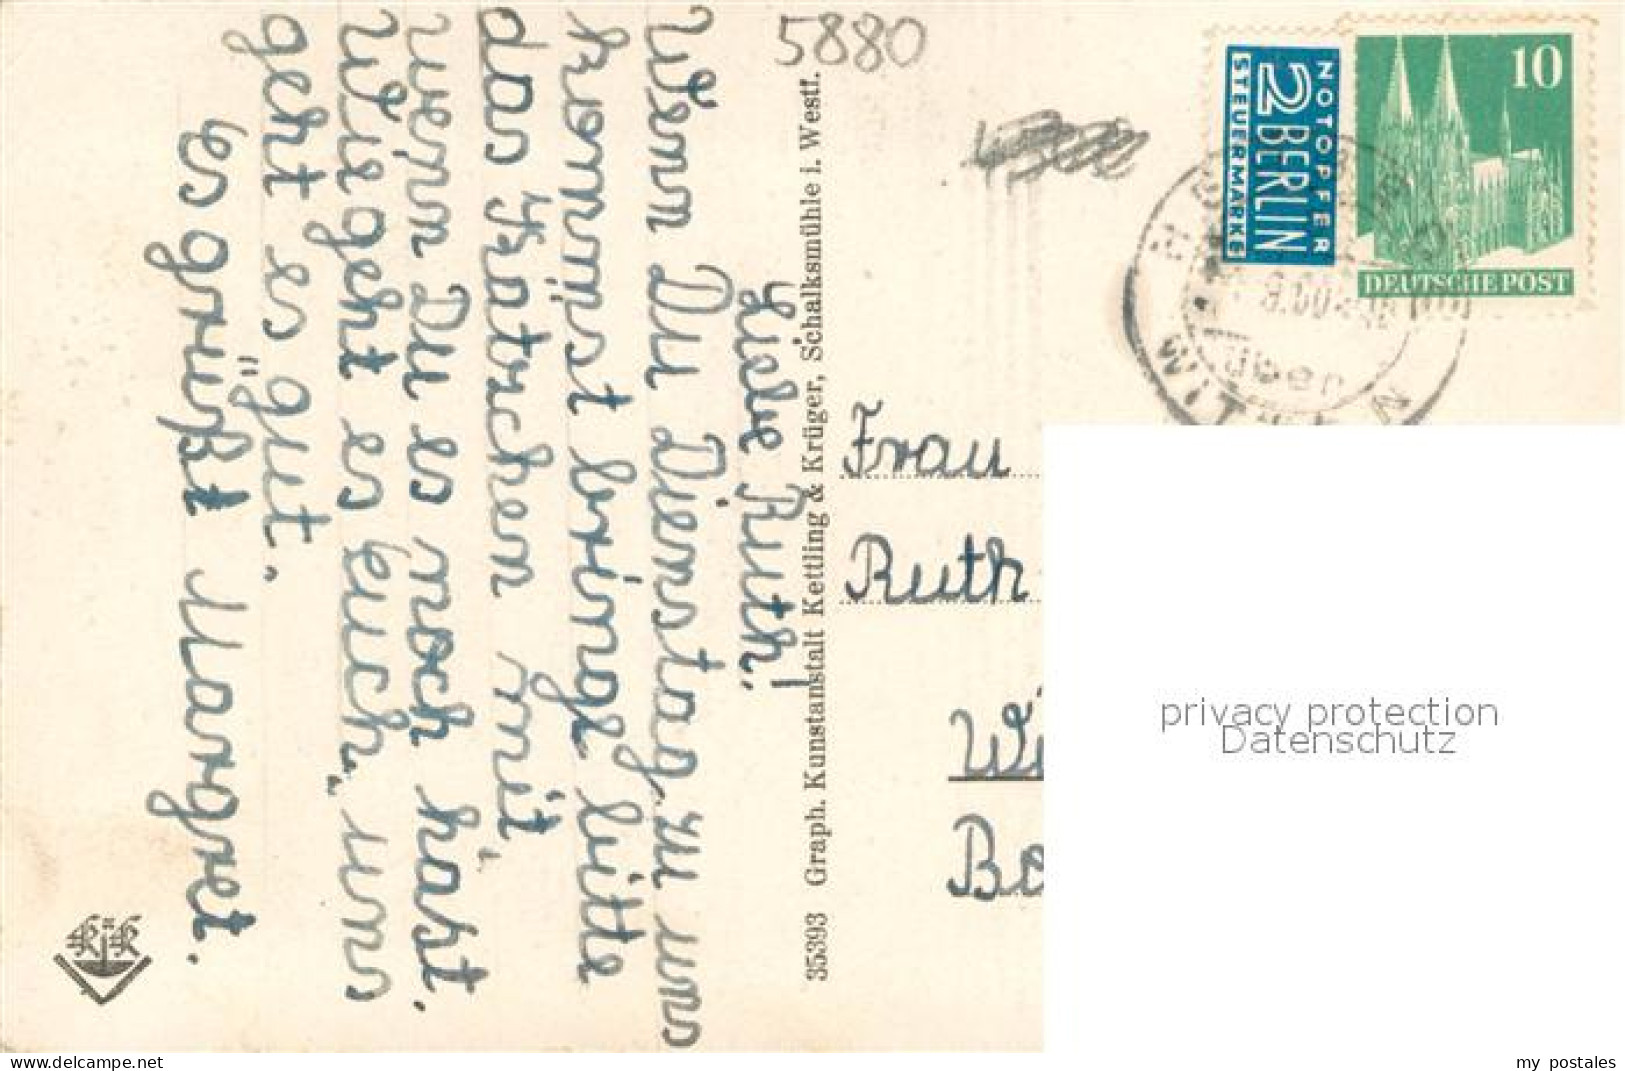 5880
Liebe Ruth!
Wenn Du Dienstag zu uns
kommst bringe bitte
das Kratschen mit,
wenn Du es noch hast.
Wie geht es Euch, uns
geht es gut.
Es grüßt Margret.
35393 Graph. Kunstanstalt Kettling & Krüger, Schalksmühle i. Westf.
K K
NOTOPFER
2 BERLIN
STEUERMARKE
10
DEUTSCHE POST
über
WITTEN
Frau
Ruth
privacy protection
Datenschutz
my postales